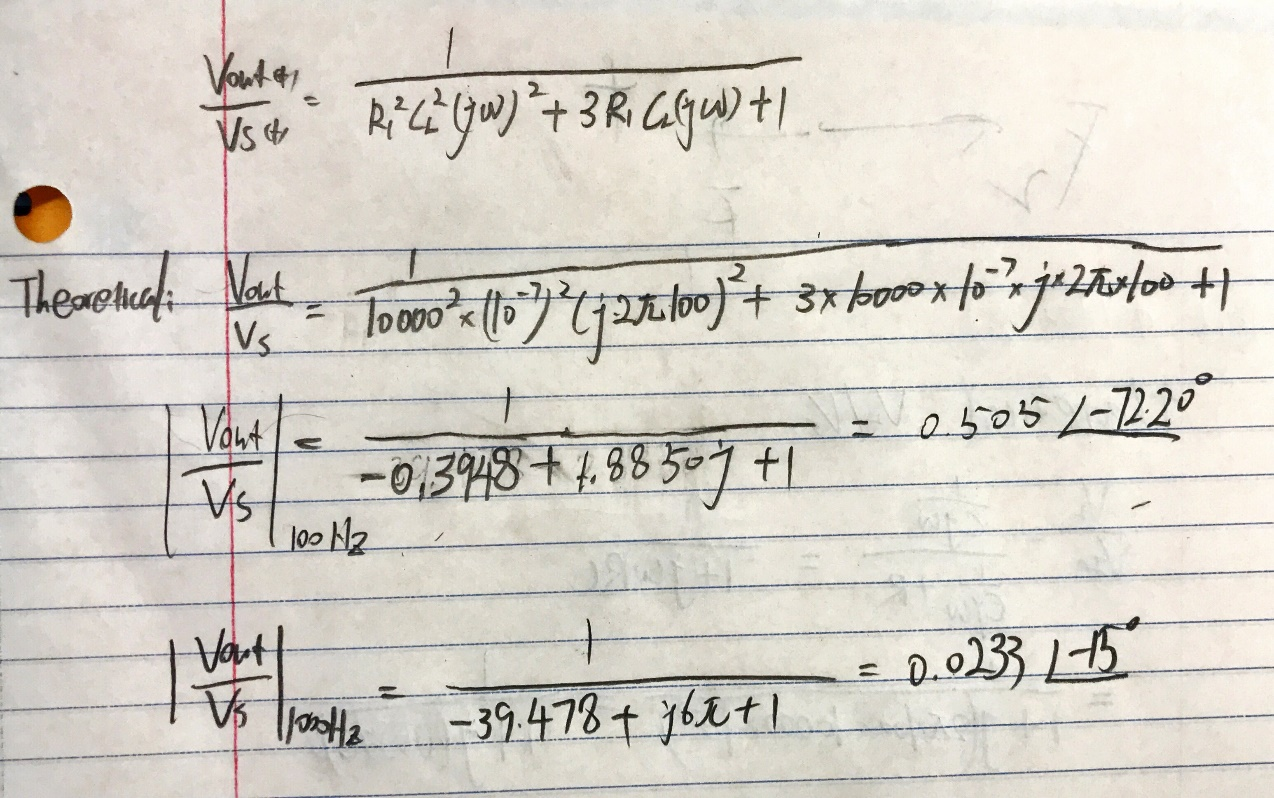 Vout(t)/Vs(t) = 1/(R₁²C₂²(jω)² + 3R₁C₂(jω) + 1)
Theoretical: Vout/Vs = 1/(10000² × (10⁻⁷)² (j2π100)² + 3 × 10000 × 10⁻⁷ × j × 2π × 100 + 1)
|Vout/Vs|100Hz = 1/(-0.3948 + 1.8850j + 1) = 0.505 ∠-72.20°
|Vout/Vs|1000Hz = 1/(-39.478 + j6π + 1) = 0.0233 ∠-15°